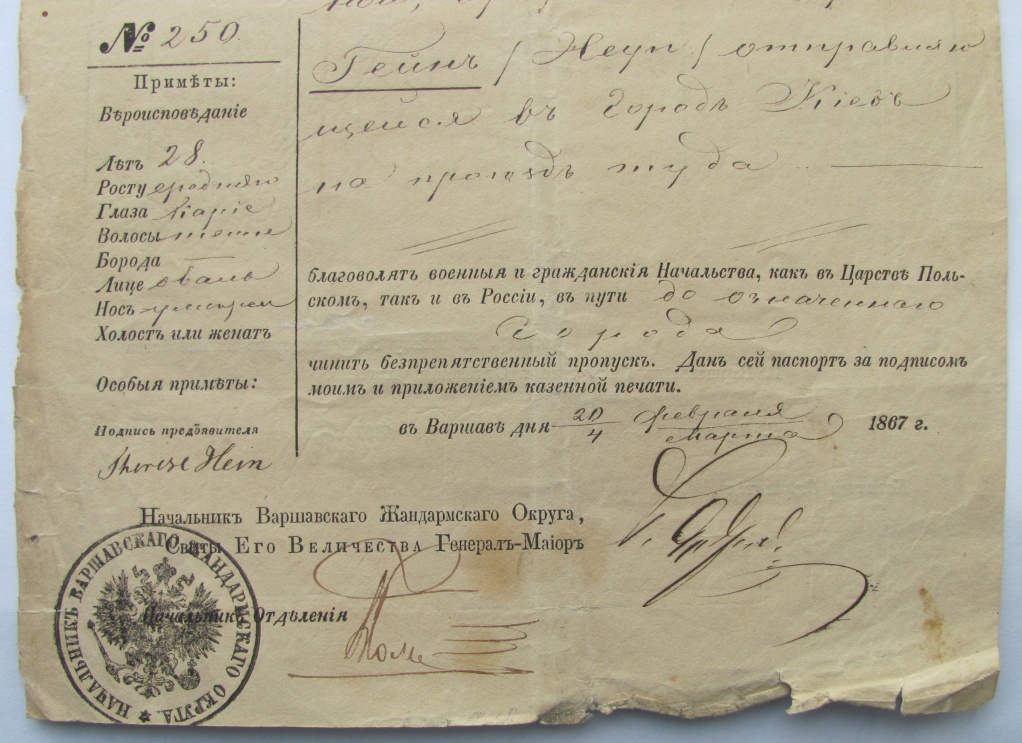 № 250.
Примѣты:
Вѣроисповѣданіе
Лѣтъ 28.
Росту средняго
Глаза Каріе
Волосы темные
Борода —
Лице овалъ
Носъ
Холостъ или женатъ
Особыя примѣты:
Подпись предъявителя
Therese Hein
Гейнъ / Неуп / отправляю
щейся въ городъ Кіевъ
на проѣздъ туда —
благоволятъ военныя и гражданскія Начальства, какъ въ Царствѣ Поль-
скомъ, такъ и въ Россіи, въ пути до означеннаго
города
чинить безпрепятственный пропускъ. Данъ сей паспортъ за подписомъ
моимъ и приложеніемъ казенной печати.
въ Варшавѣ дня 20/4 февраля/марта 1867 г.
Начальникъ Варшавскаго Жандармскаго Округа,
Свиты Его Величества Генералъ-Маіоръ
Начальникъ Отдѣленія
НАЧАЛЬНИКЪ ВАРШАВСКАГО ЖАНДАРМСКАГО ОКРУГА.